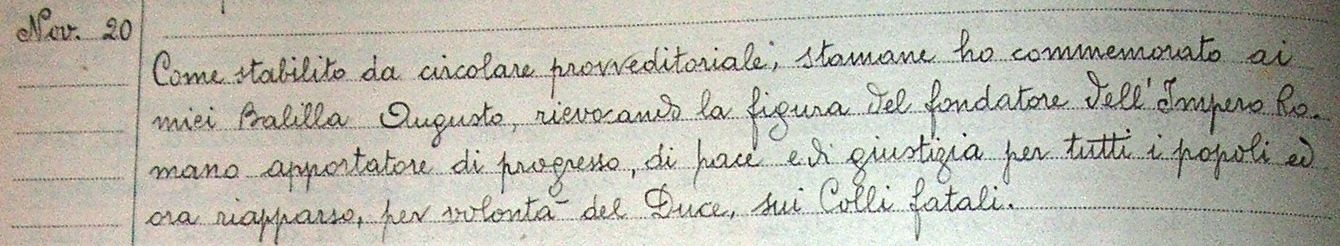 Nov. 20
Come stabilito da circolare provveditoriale, stamane ho commemorato ai
miei Balilla Augusto, rievocando la figura del fondatore dell'Impero Ro-
mano apportatore di progresso, di pace e di giustizia per tutti i popoli ed
ora riapparso, per volontà del Duce, sui Colli fatali.